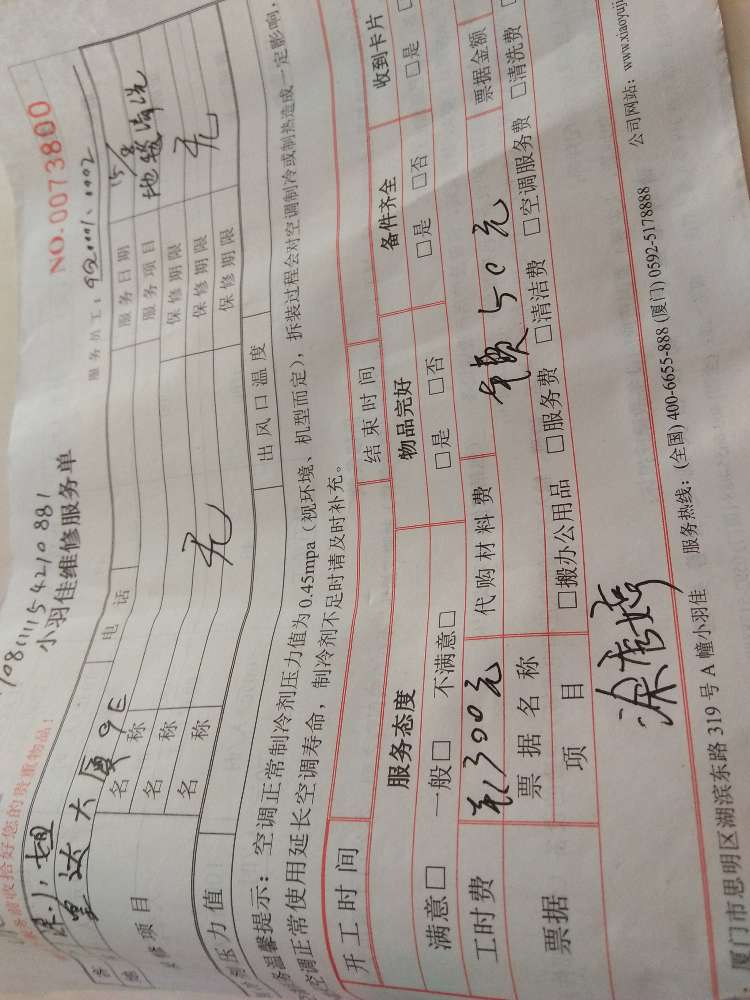 务前收拾好您的贵重物品!
NO.0073800
小羽佳维修服务单
服务员工:
大厦9E
电话
服务日期
名称
服务项目 地毯清洗
名称
保修期限 无
名称
保修期限
维修项目
无
保修期限
压力值
出风口温度
服务温馨提示:空调正常制冷剂压力值为0.45mpa(视环境、机型而定),拆装过程会对空调制冷或制热造成一定影响,
空调正常使用延长空调寿命,制冷剂不足时请及时补充。
开工时间
结束时间
服务态度
物品完好
备件齐全
收到卡片
满意□ 一般□ 不满意□
□是 □否
□是 □否
□是
工时费
300元
代购材料费
50元
票据金额
票据
票据名称
项目
□搬办公用品 □服务费 □清洁费 □空调服务费 □清洗费
厦门市思明区湖滨东路 319 号 A 幢小羽佳 服务热线:(全国) 400-6655-888 (厦门) 0592-5178888 公司网站:www.xiaoyuji